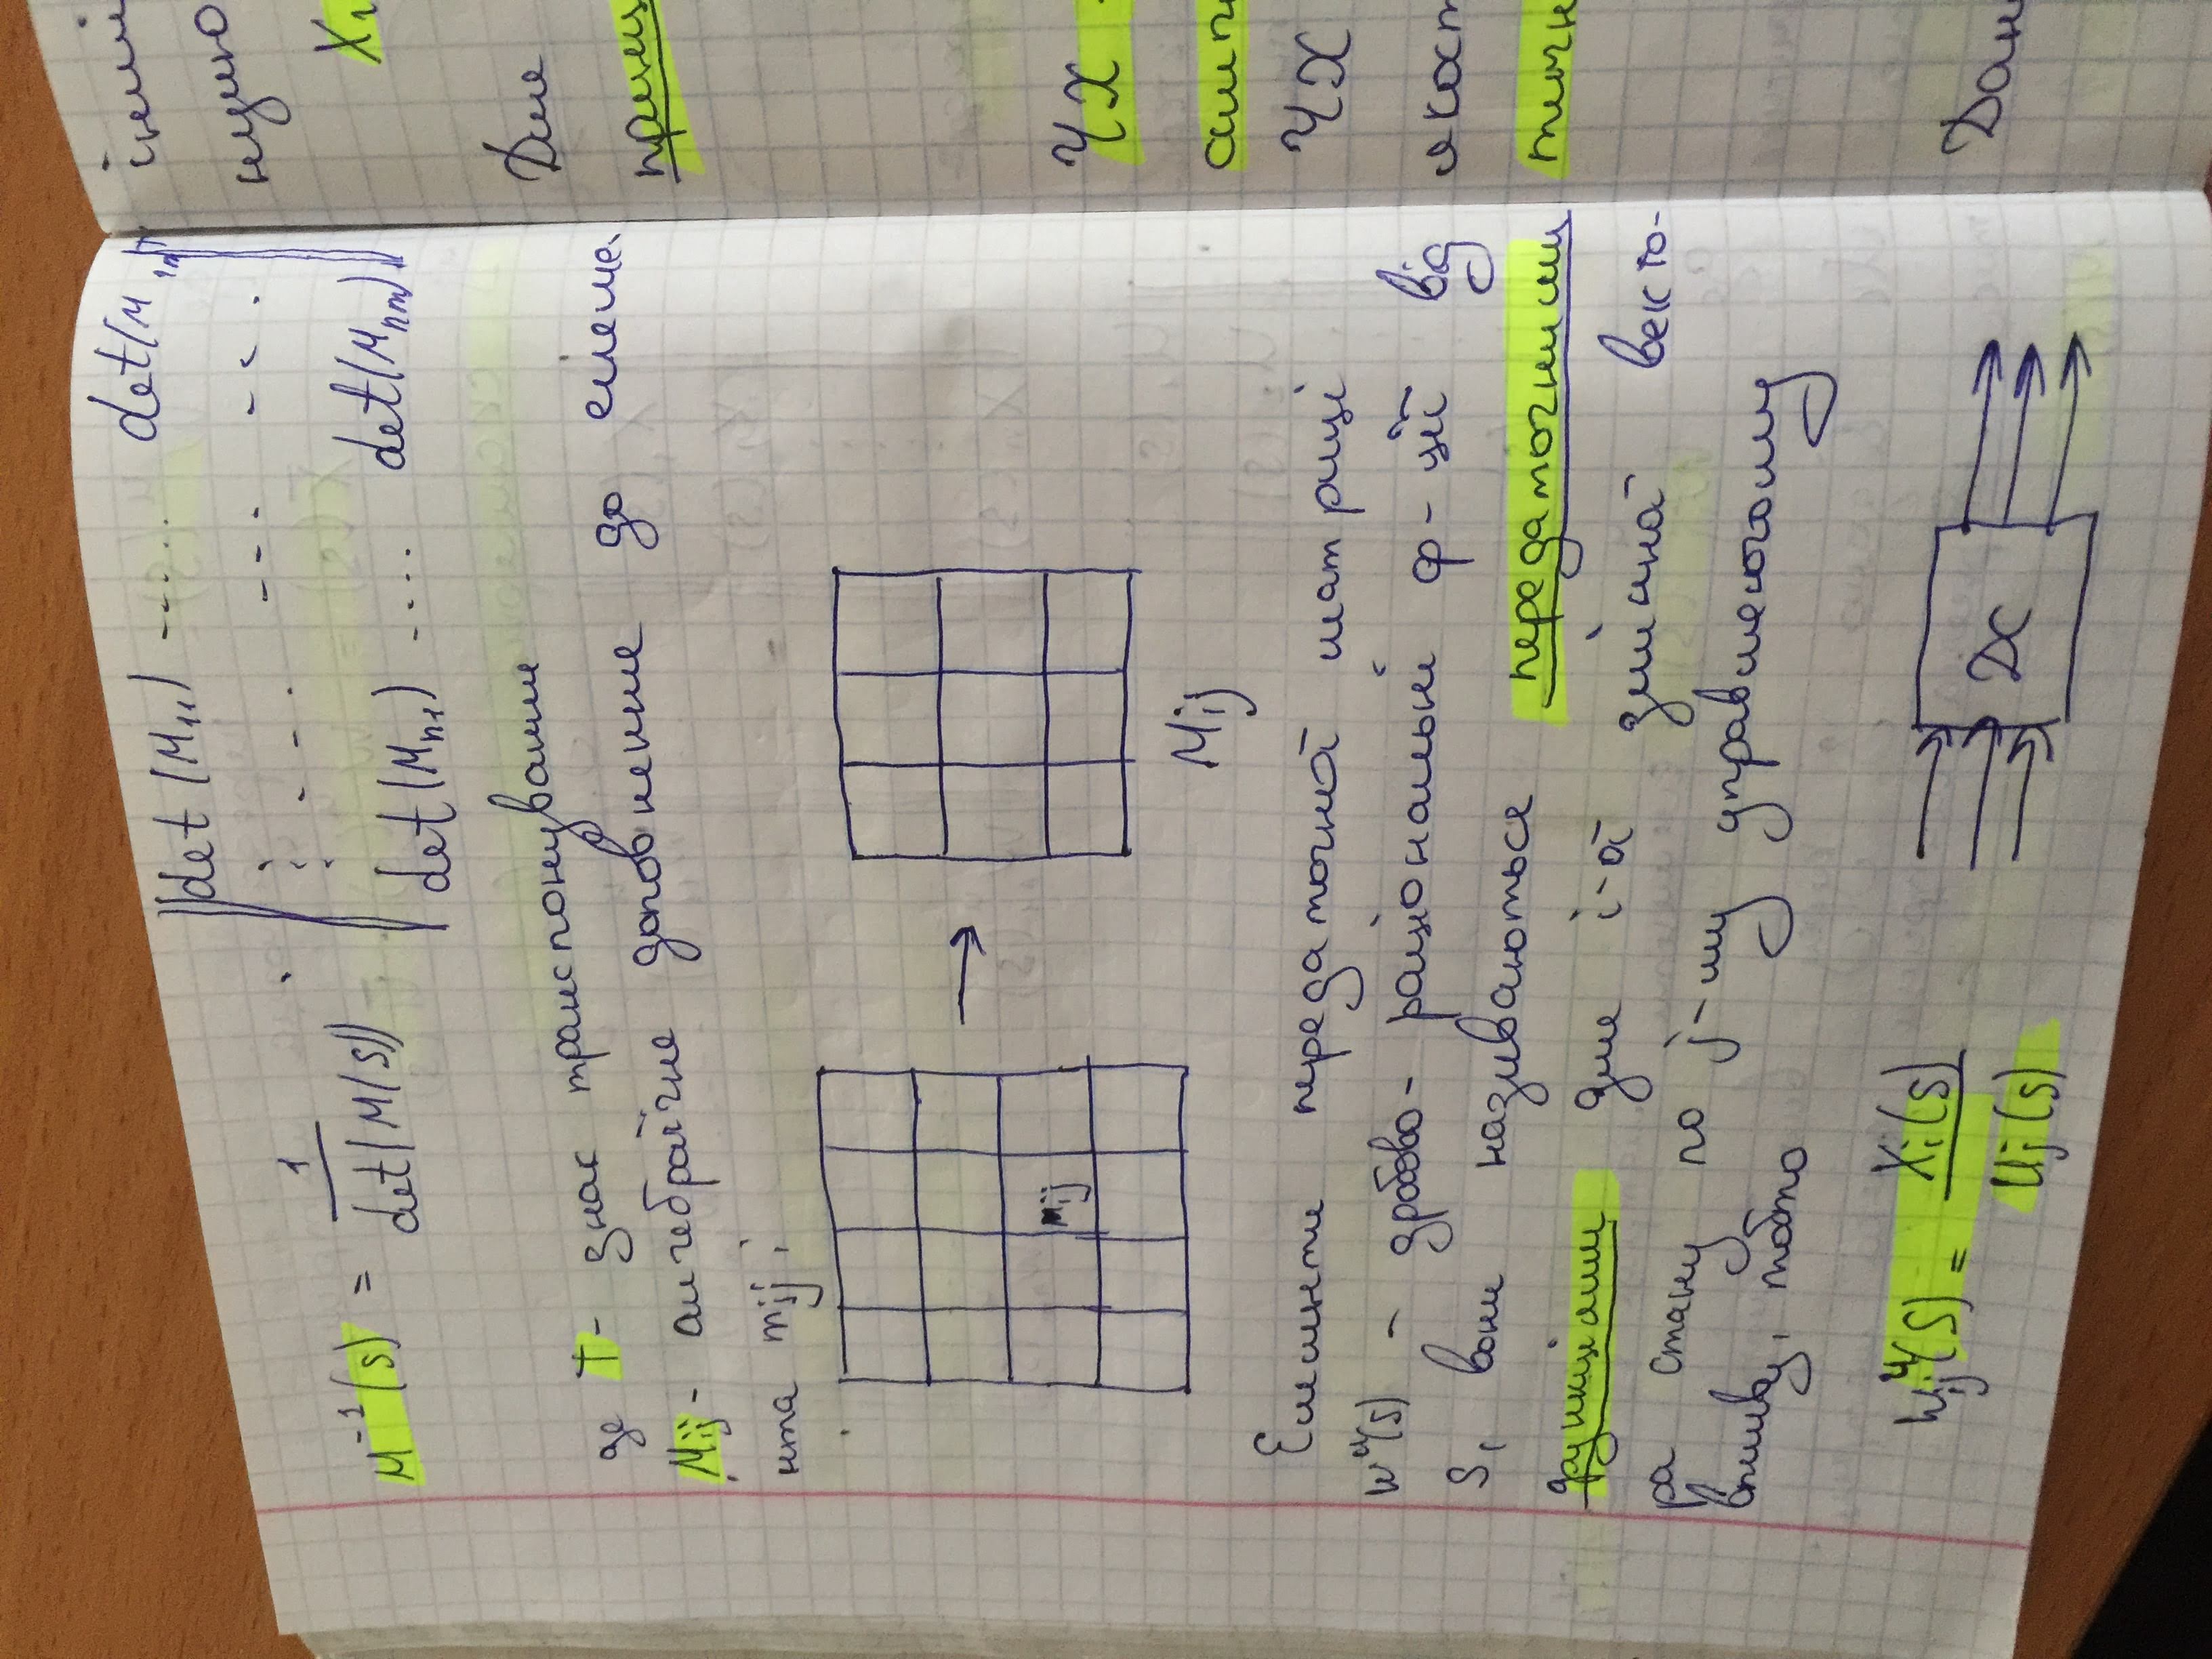 M⁻¹(s) = 1 / det(M(s)) · || det(M₁₁) ..... det(M₁ₘ)
⋮ ... --- ---
det(Mₙ₁) .... det(Mₙₘ) ||
де T - знак транспонування
Mij - алгебраїчне доповнення до елеме-
нта mij;
Mij
Mij
Елементи передаточної матриці
Wᵘ(s) - дробово-раціональні ф-ції від
S, вони називаються передаточними
функціями для i-ої змінної векто-
ра стану по j-му управляючому
впливу, тобто
Wijᵘ(S) = Xi(s) / Uj(s)
ДС
інші
нцію
X₁
Для
принц
ЧХ
ЧХ
якост
точн
Дан